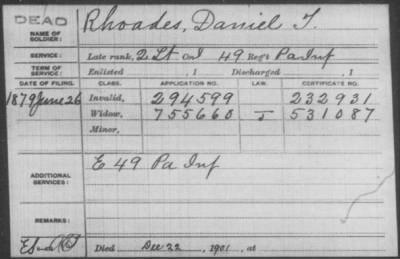 DEAD
NAME OF SOLDIER: Rhoades, Daniel T.
SERVICE: Late rank, 2 Lt Co I 49 Reg't Pa Inf
TERM OF SERVICE: Enlisted , 1 Discharged , 1
DATE OF FILING. CLASS. APPLICATION NO. LAW. CERTIFICATE NO.
1879 June 26 Invalid, 294599 232931
Widow, 755660 531087
Minor,
ADDITIONAL SERVICES: E 49 Pa Inf
REMARKS:
Died Dec 22, 1901, at